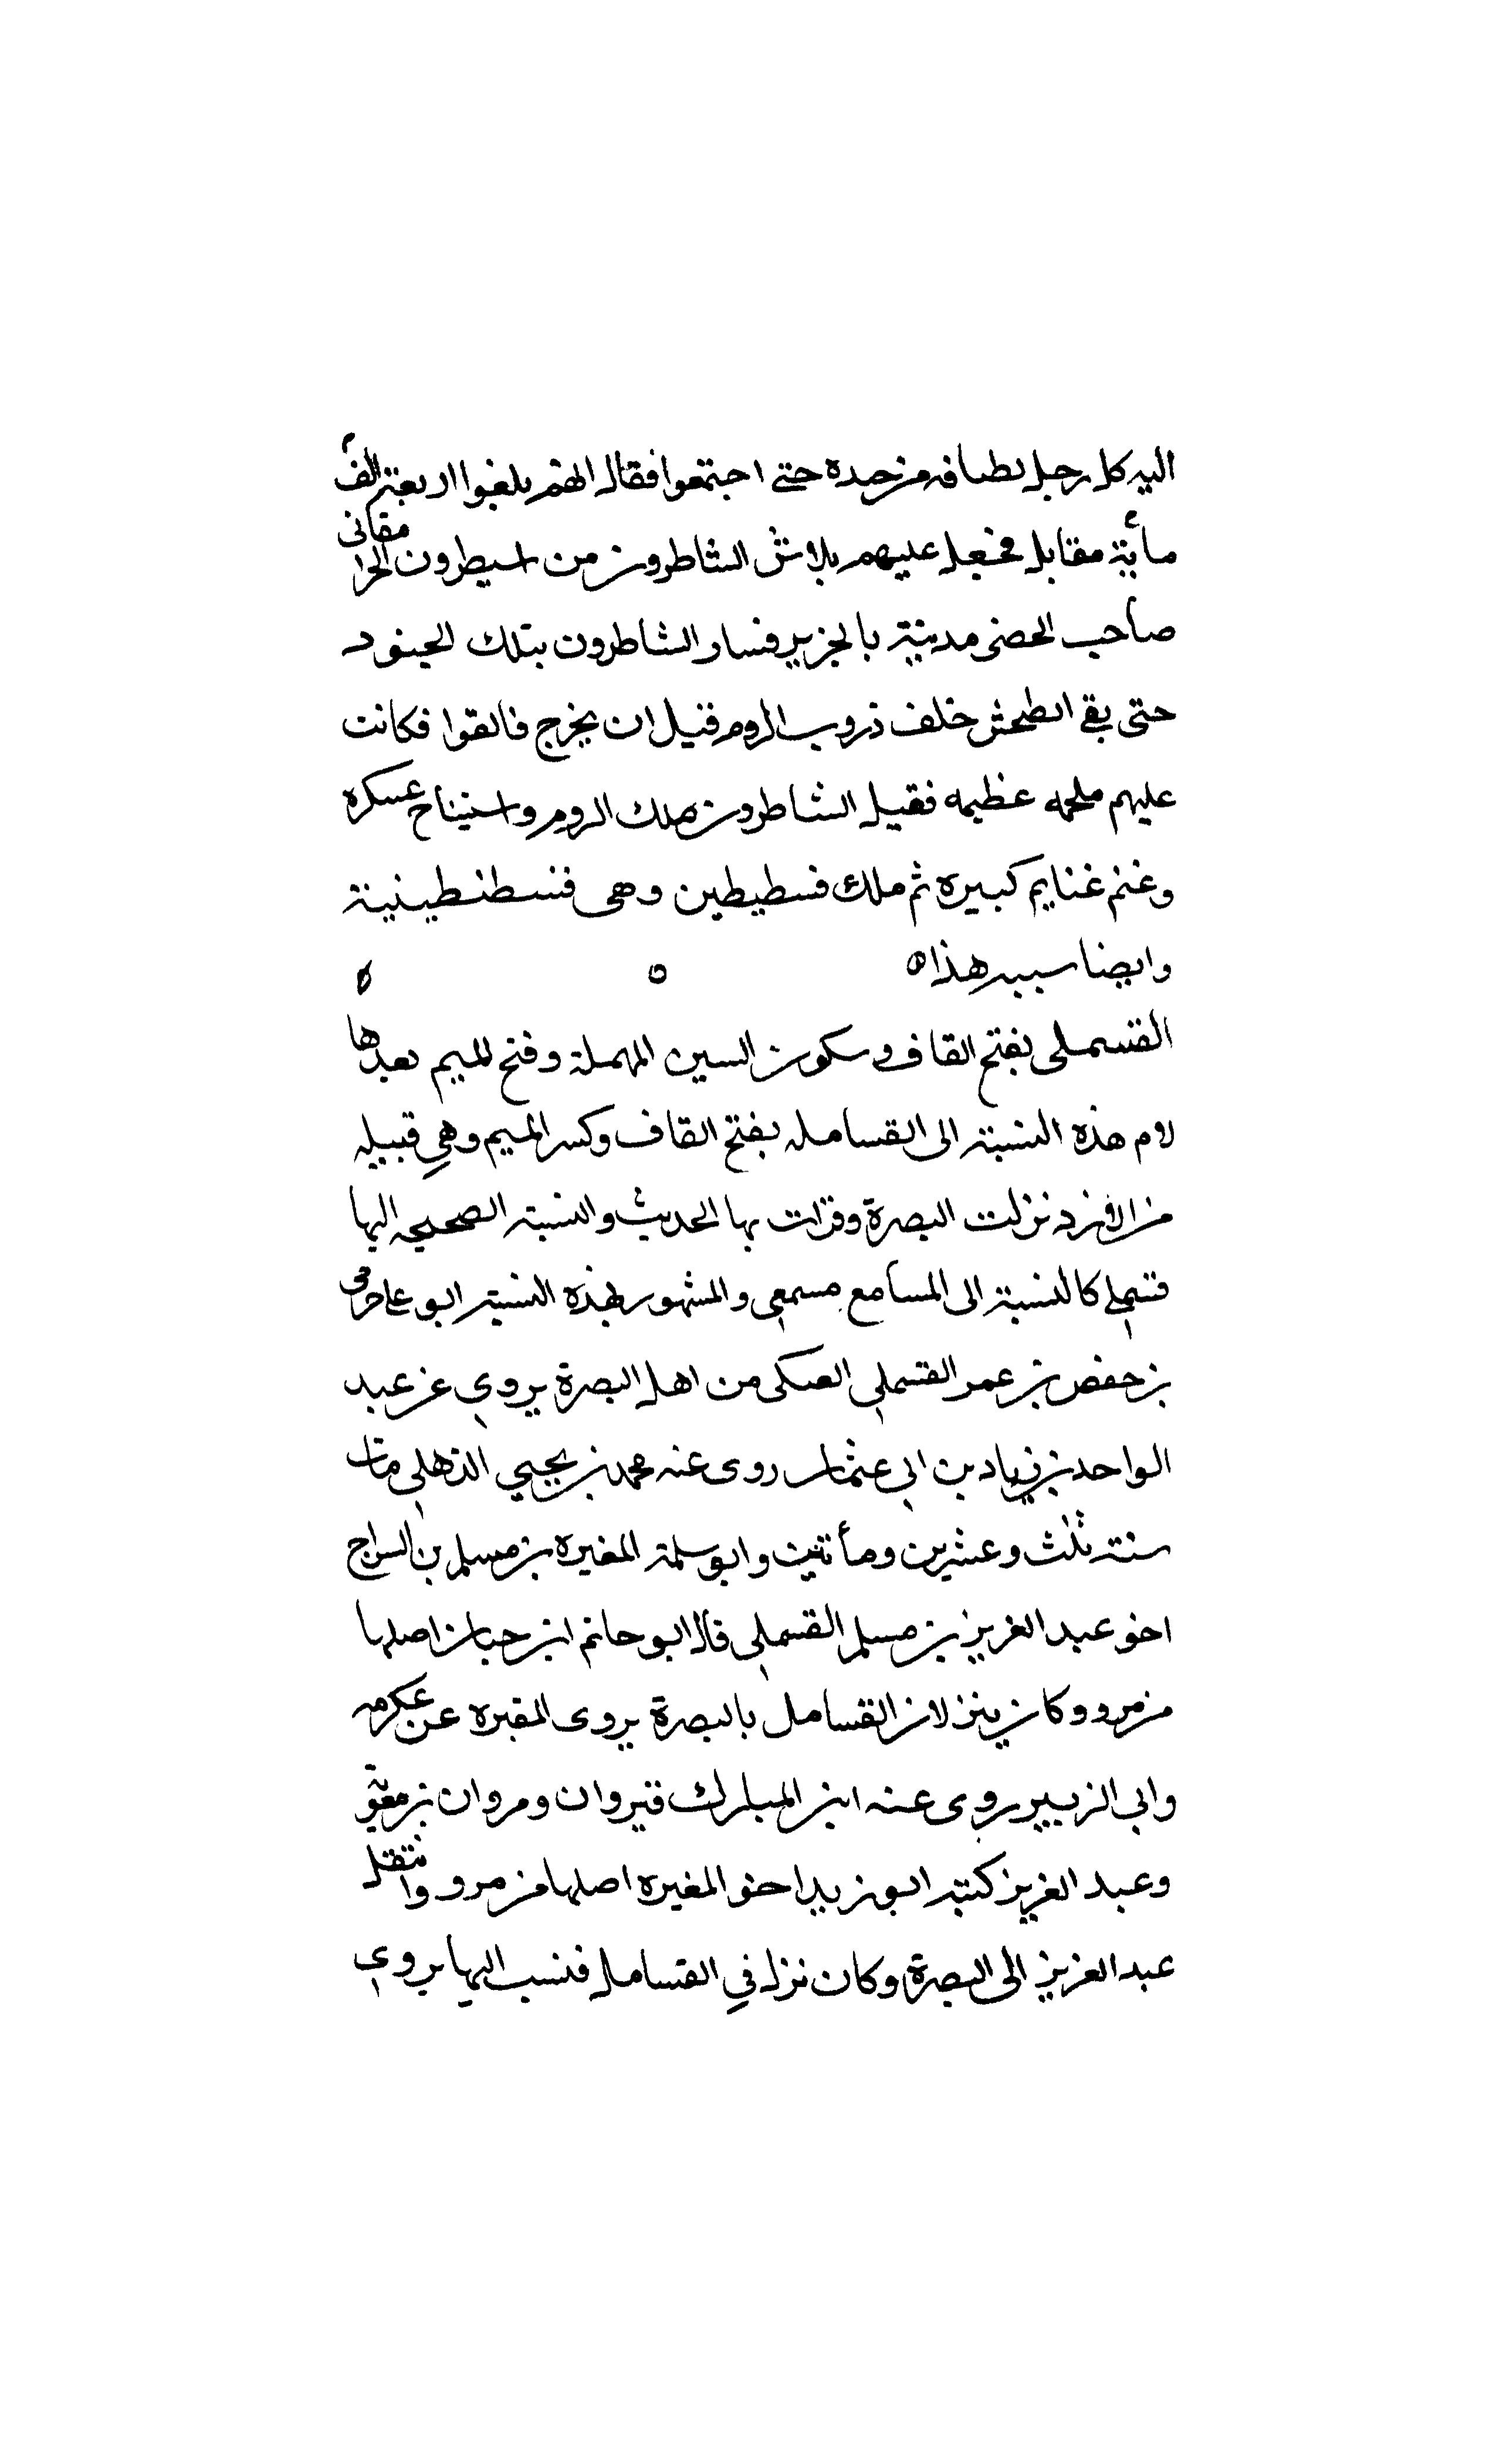 اليه كل رجل لطيافه من جده حتى اجتمعوا فقال انهم بلغوا اربعة الف
مأية مقابل فجعل عليهم بلاش الشاطرون من اسيطرون الجرامقانى
صاحب الحضى مدينة بالجزير فسار الشاطرون بتلك الجنود
حتى بقى خلف ذروب الروم قبل ان يخرج فالقوا فكانت
عليهم ملحمه عظيمه فقيل الشاطرون ملك الروم واستيناح عسكره
وغنم غنايم كبيره ثم ملك قسطيطين وهى قسطنطينية
وايضا سببه هذا ه ه ه
القسملى بفتح القاف وسكون السين المهملة وفتح الميم بعدها
لام هذه النسبة الى القسامله بفتح القاف وكسر الميم وهي قبيله
من الازد نزلت البصرة وقرات بها الحديث والنسبة الصحيحه اليها
قسملي كالنسبة الى المسامع مسمعي والمشهور بهذه النسبة ابو علي حرمى
بن حفص بن عمر القسملي العتكى من اهل البصرة يروي عن عبد
الواحد بن زياد بن ابي عثمان روى عنه محمد بن يحيي الذهلي مات
سنة ثلث وعشرين ومأتين وابو سلمة المغيره بن مسلم بن السراج
اخو عبد العزيز بن مسلم القسملي قال ابو حاتم ابن حبان اصلها
من مرو وكان ينزلان القسامل بالبصرة يروى المقبره عن عكرمه
وابي الزبير روى عنه ابن المبارك قيروان ومروان بن معوية
وعبد العزيز كنيته ابو زيد اخو المغيره اصلها من مرو وانتقل
عبد العزيز الى البصرة وكان نزل في القسامل فنسب اليها يروي